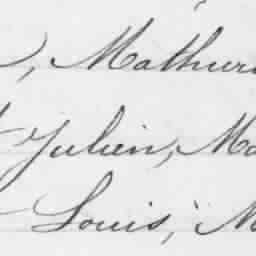 , Mathuri
Julien, Ma
Louis, M